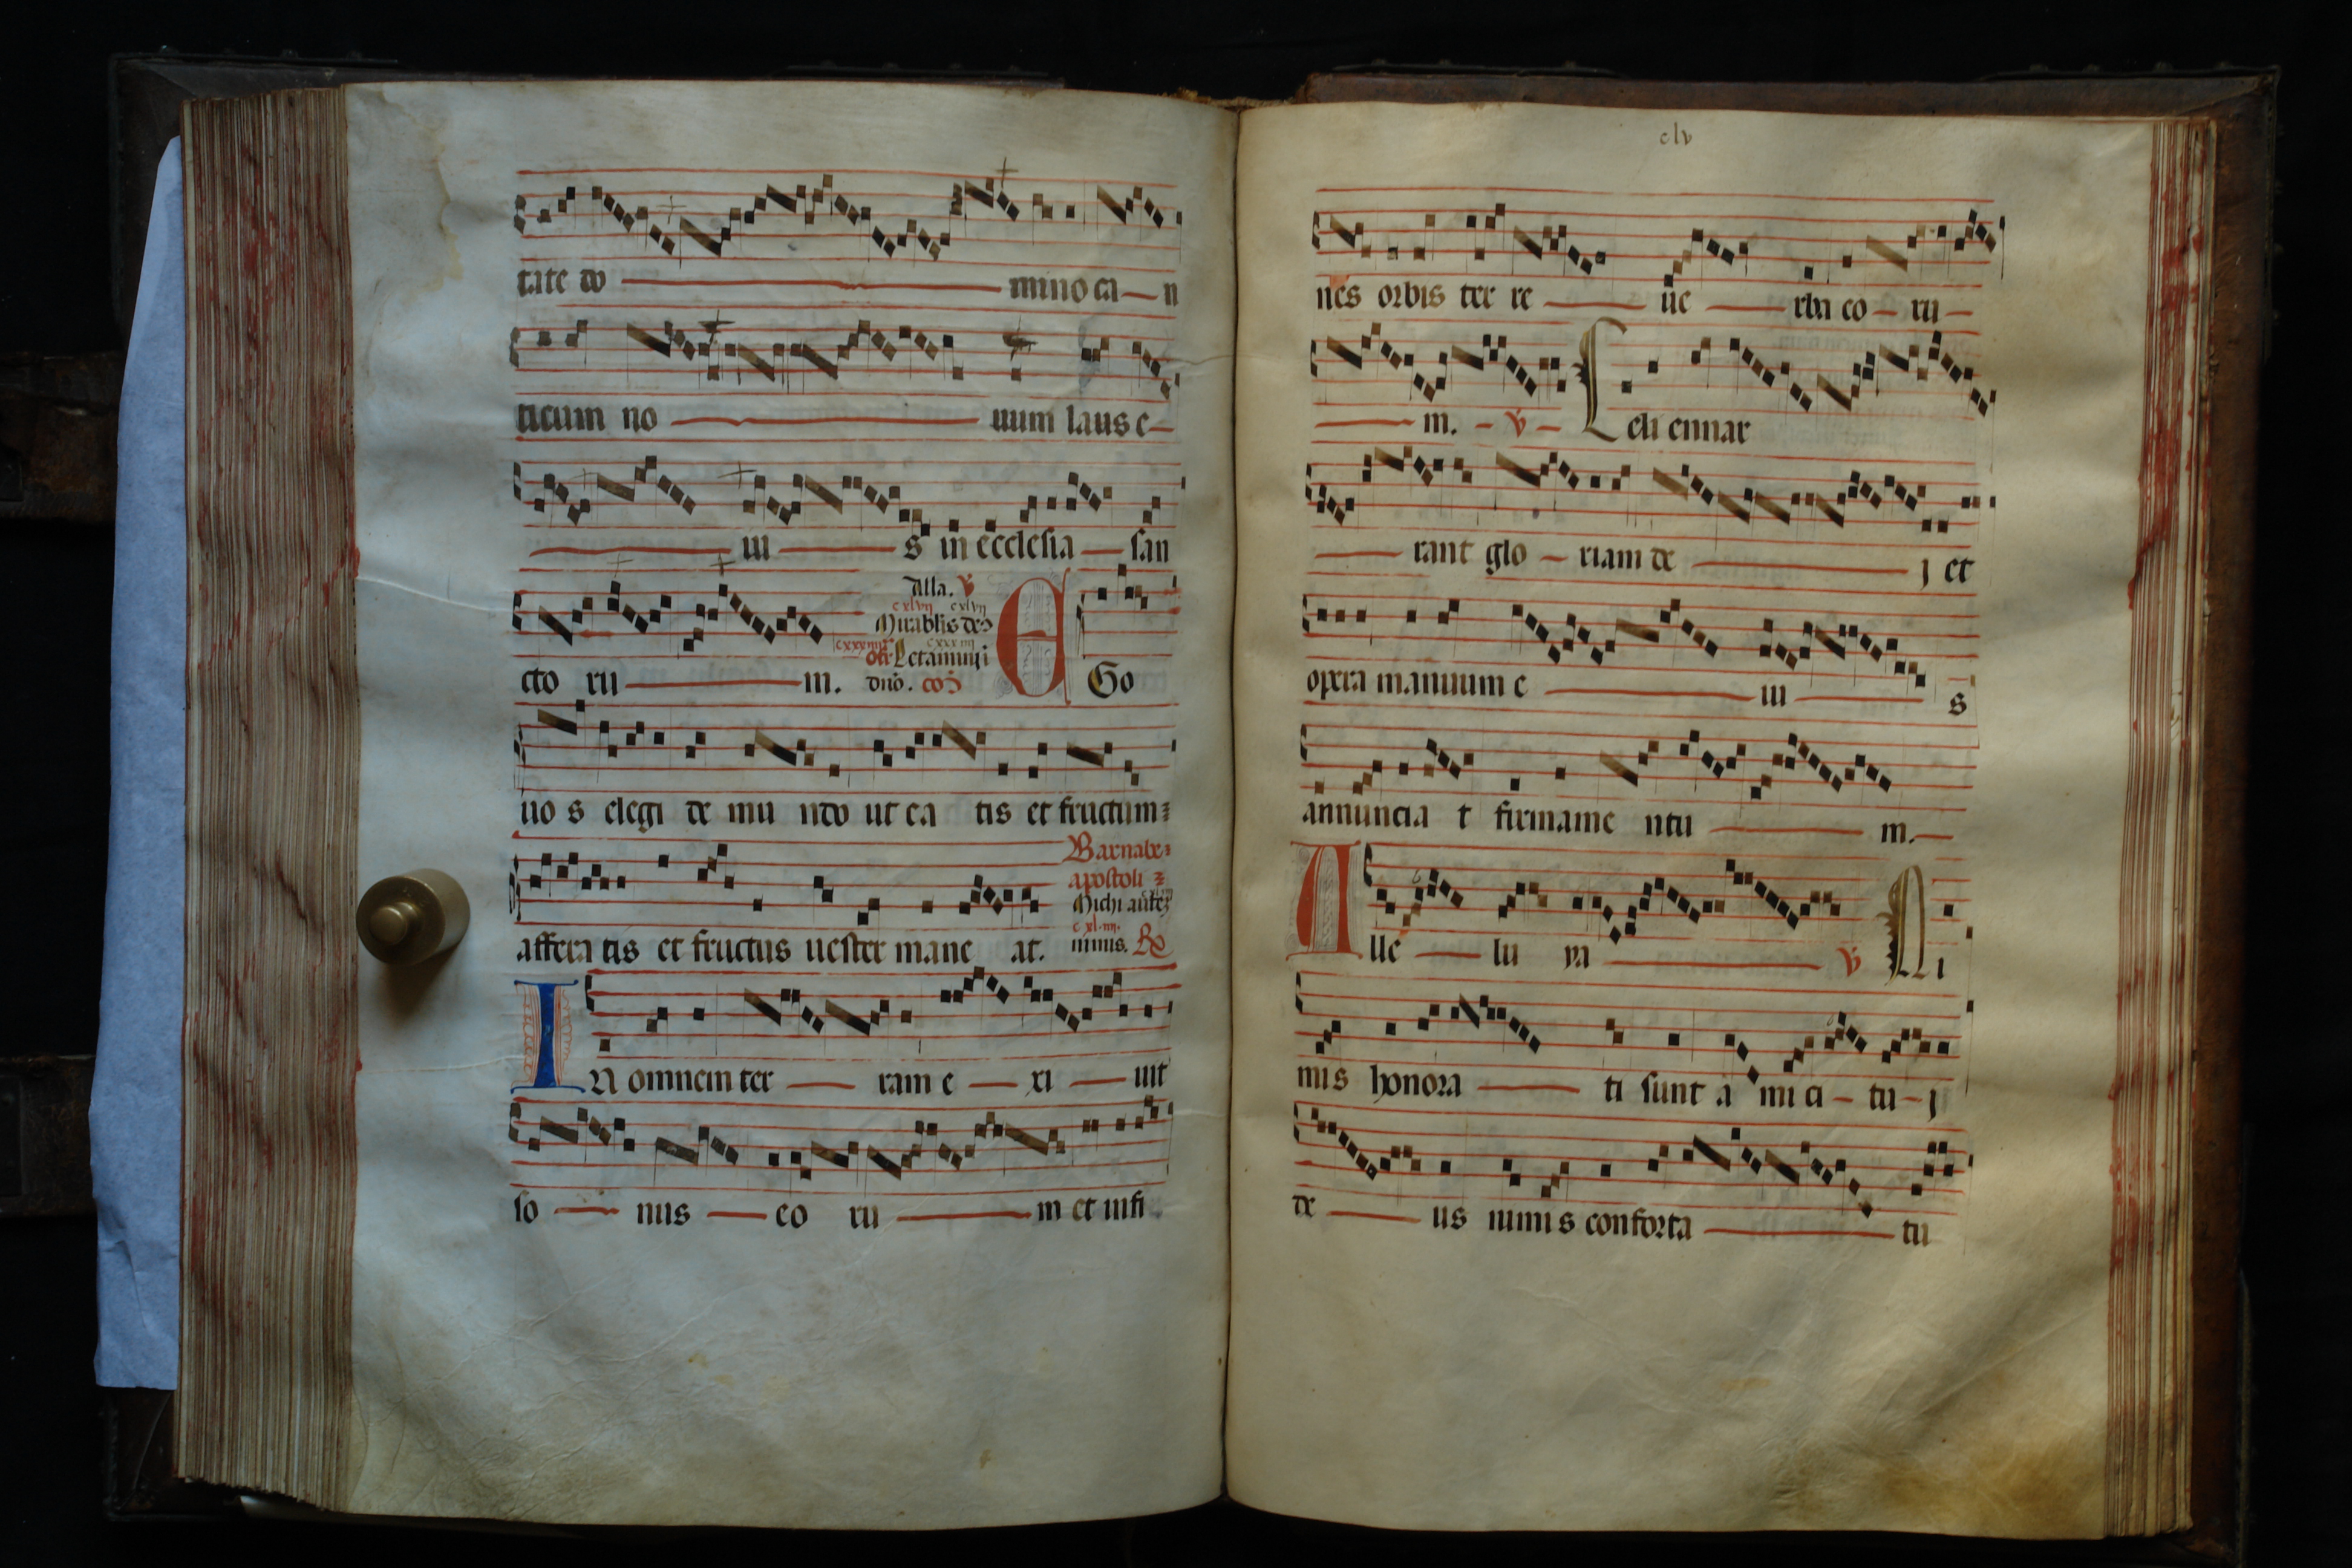 tate do mino ca n
ticum no uum laus e
iu s in ecclesia san
Alla. v
cxlvij cxlvij
Mirablis deꝰ
cto ru m. dnō. co᷒ Go
uo s elegi de mu ndo ut ea tis et fructum
Barnabe
apostoli
Michi aūtē
affera tis et fructus uester mane at. nimis. R
In omnem ter ram e xi uit
so nus eo ru m et in fi
clv
nes orbis ter re ue rba co ru
m. v Celi ennar
rant glo riam de j et
opera manuum e iu s
annuncia t firmame ntu m.
Alle lu ya v Ni
mis honora ti sunt a mi ci tu j
de us nimi s conforta tu